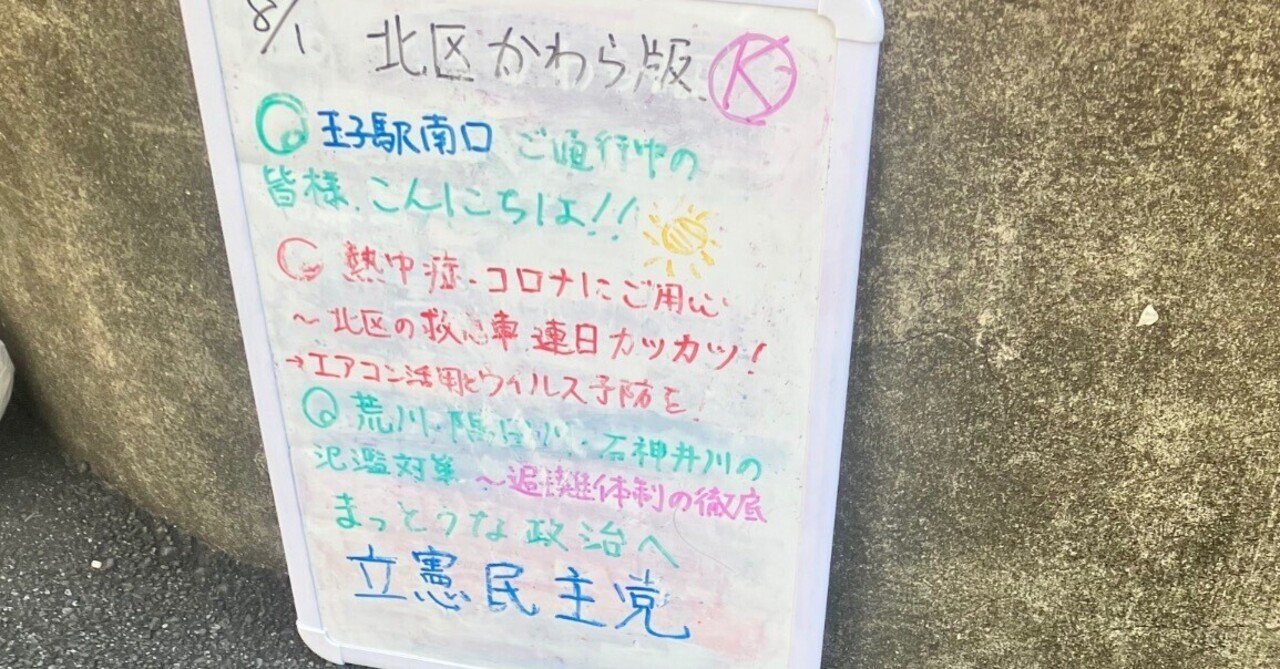 8/1 北区かわら版 K
玉子駅南口 ご通行中の
皆様、こんにちは!!
熱中症・コロナにご用心
～北区の救急車 連日カツカツ!
→エアコン活用とウイルス予防を!
荒川・隅田川・石神井川の
氾濫対策 ～避難体制の徹底
まっとうな政治へ
立憲民主党